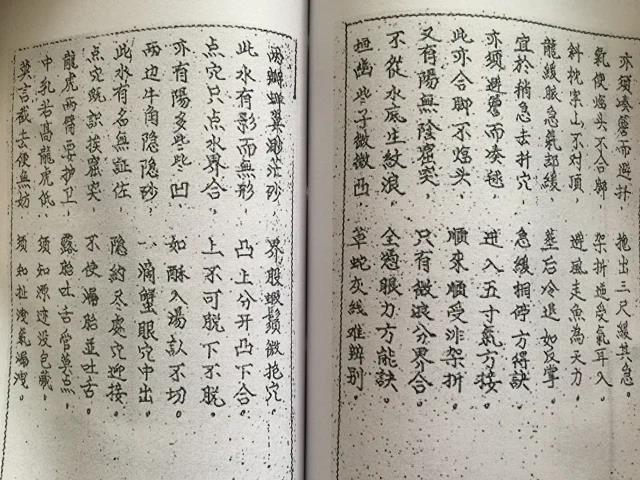 亦须凑簷而避扦 拖出三尺緩其急。
氣使临头不合脚 架折迤受氣耳入。
斜枕案山不对頂， 避風走魚為天力。
龍緩脈急氣部緩， 莖后冷退如反掌。
宜於稍急去扦穴， 急緩相停方得訣。
亦须避簷而凑毬， 进入五寸氣方接。
此亦合脚不临头， 順來順受非架折
又有陽無陰窟突， 只有微浪分界合。
不從水底生紋浪， 全憑眼力方能訣。
些子微微凸， 草蛇灰线难辨别。
两瓣蟬翼渺茫砂， 界股蝦鬚微抱穴。
此水有影而無形， 凸上分开凸下合。
点穴只点水界合， 上不可脱下不脱。
亦有陽多些些凹， 如酥入湯款不切。
两边牛角隐隐砂， 一滴蟹眼穴中出。
此水有名無証佐， 隐约尽處穴迎接。
点穴既訣挨窟突， 不使漏胎並吐舌。
龍虎两臂要护卫， 露胎吐舌當莫点。
中乳若高龍虎低， 须知漂迹没包藏。
莫言截去便無妨 须知扯洩氣漏